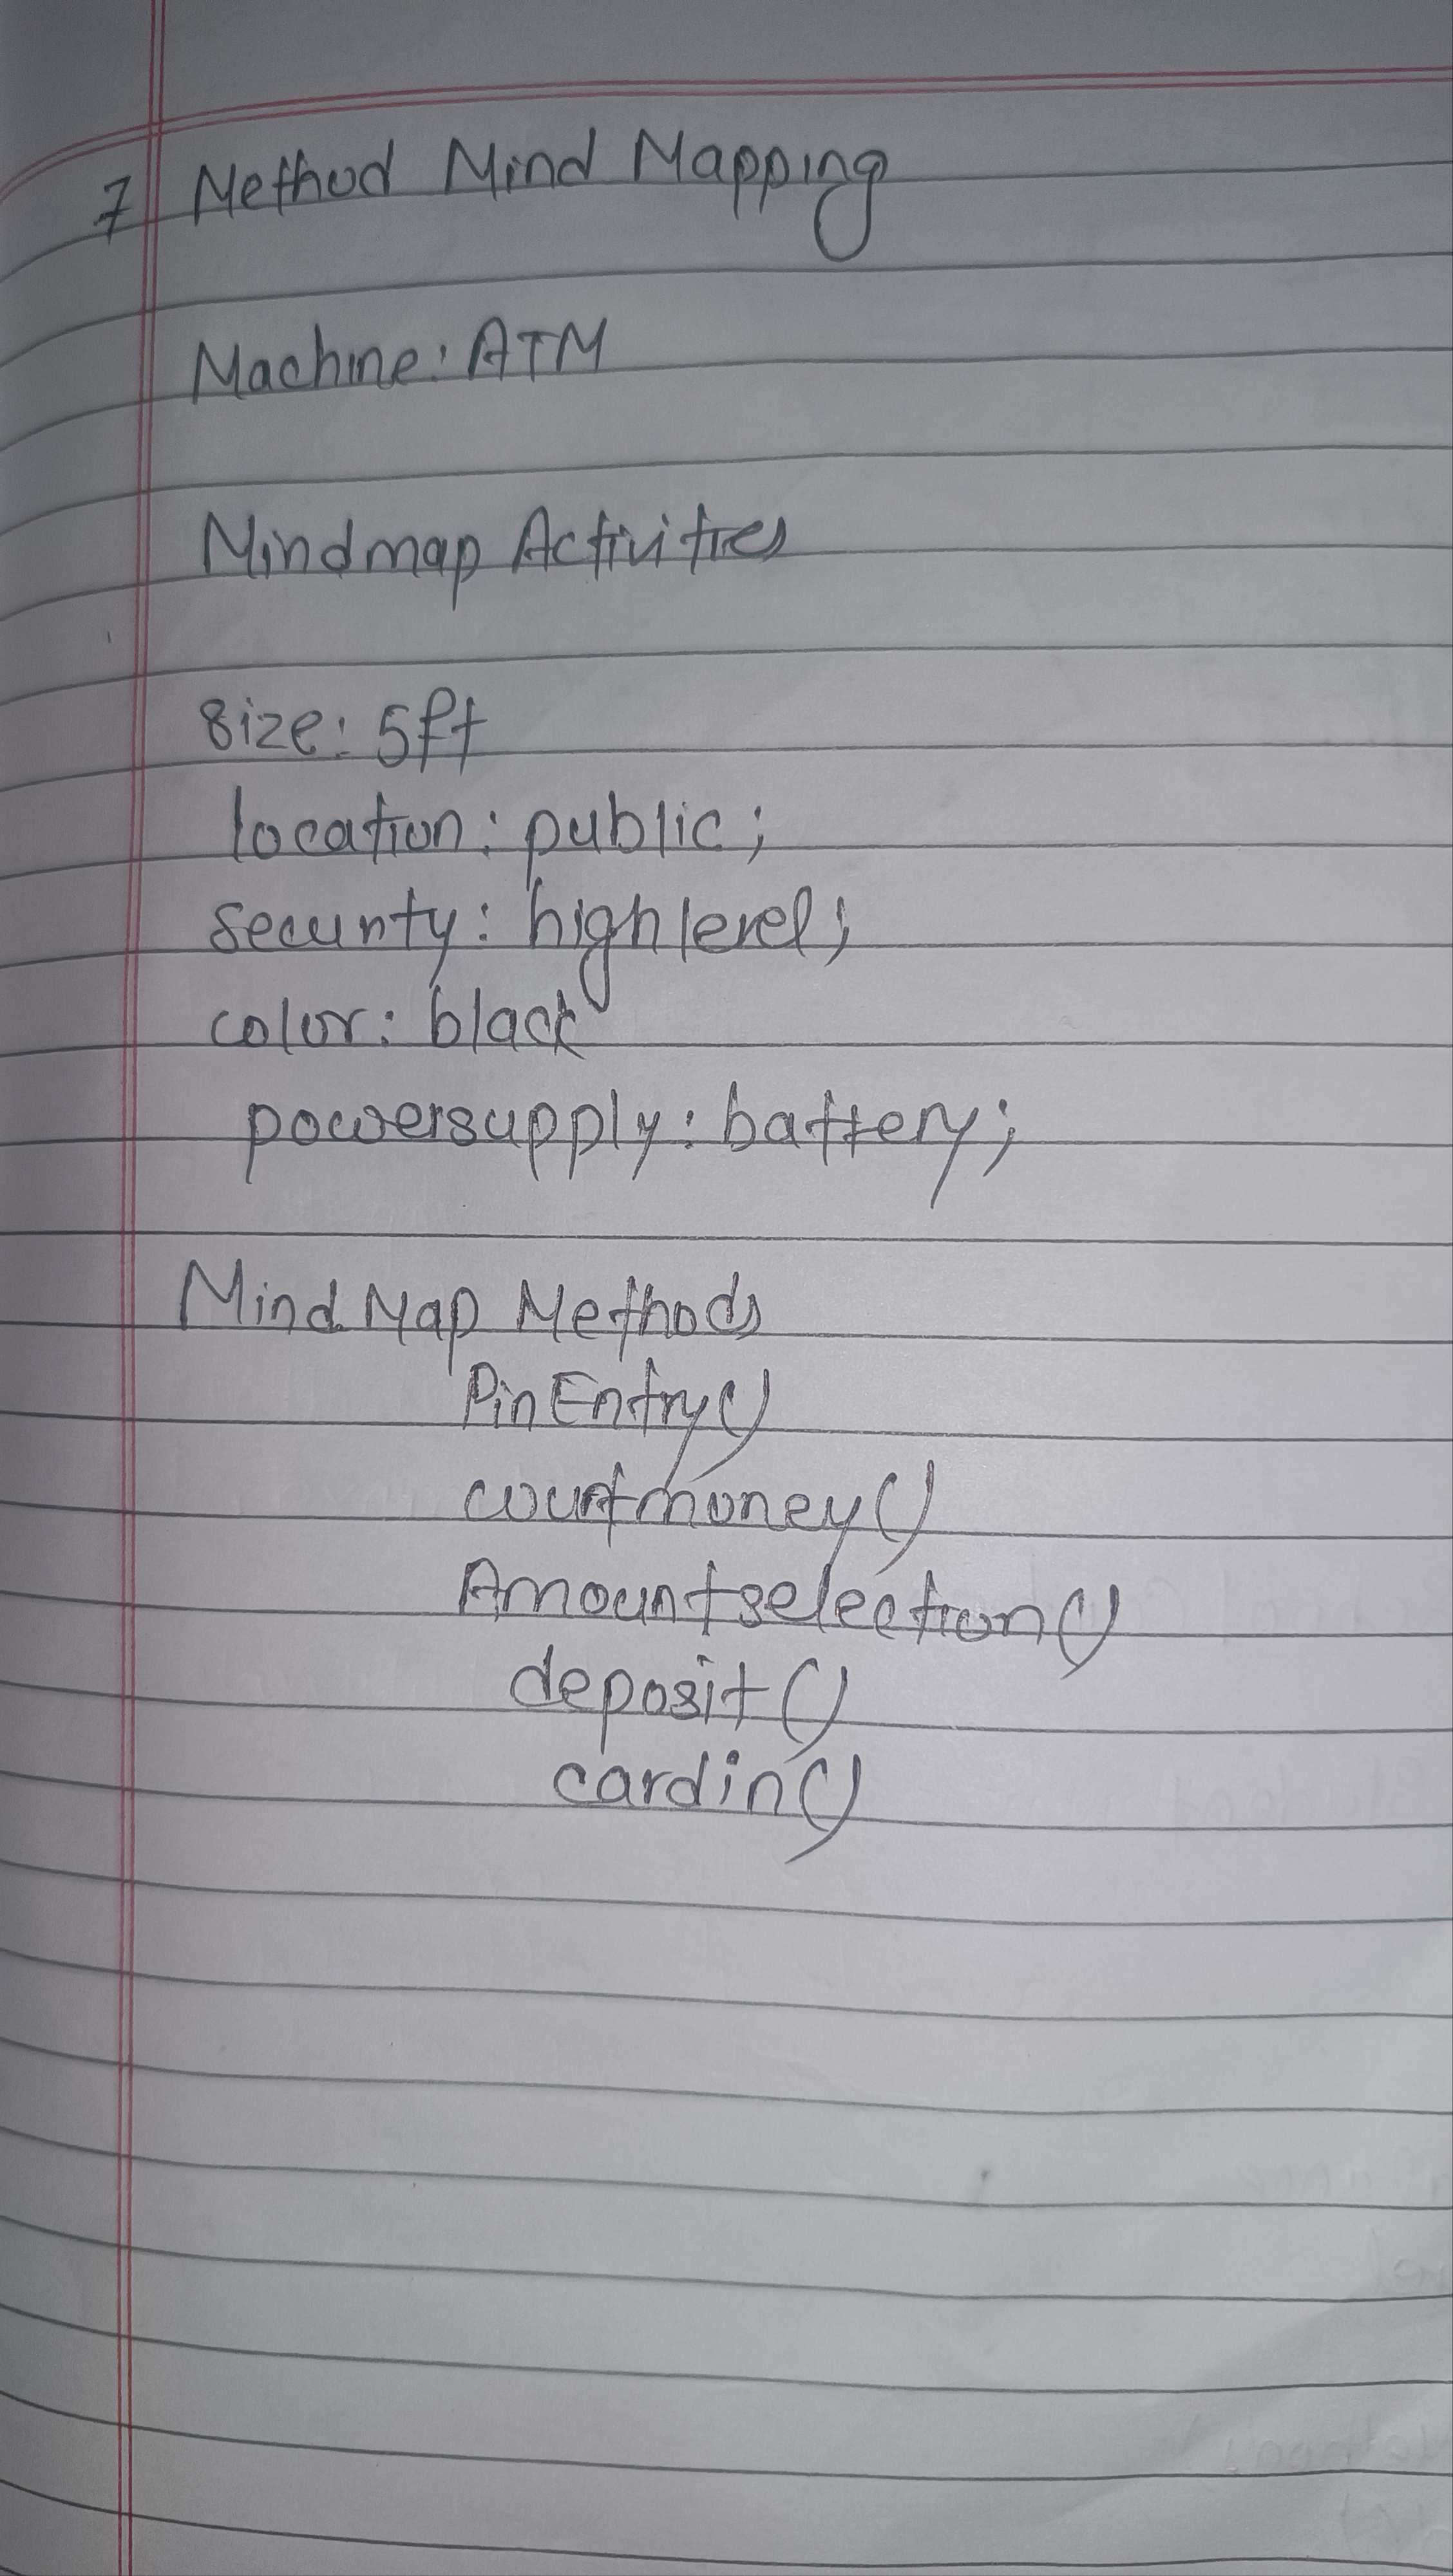 7 Method Mind Mapping
Machine: ATM
Mindmap Activities
Size: 5ft
location: public;
security: highlevel;
color: black
powersupply: battery;
Mind Map Methods
PinEntry()
countmoney()
Amountselection()
deposit()
cardin()